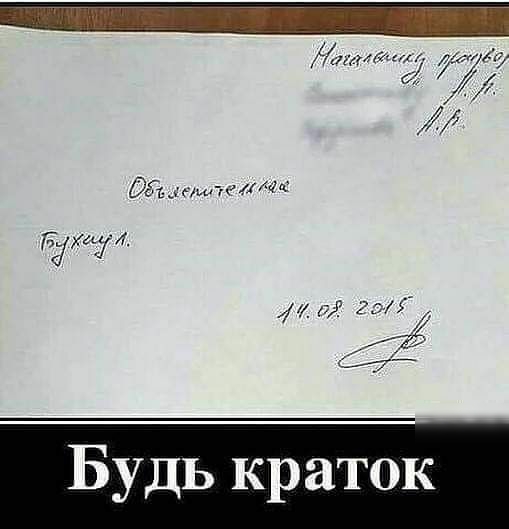 Начальнику
Л. Н.
А. В.
Объяснительная
Бухнул.
14.08.2015
Будь краток